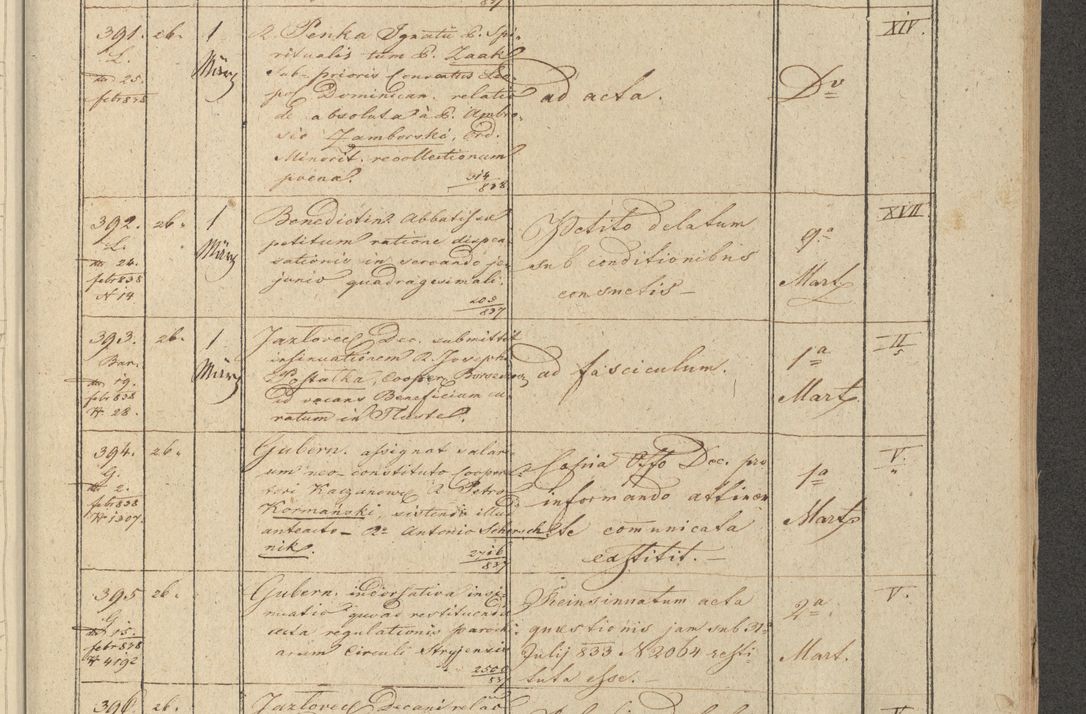 391. 26. 1 März
L.
dto 25.
febr 838
R. Penka Ignatii P. Spi-
ritualis tum P. Zaak
Sub-prioris Conventus Leo-
pol Dominican. relatio
de absoluta à P. Ambro-
sio Zamborski, Ord.
Minorit. recollectionum
poena.
314
838
ad acta.
Do
XIV.
392. 26. 1 März
L.
dto 24.
febr 838
N 14
Benedictin. Abbatissa
petitum ratione dispen-
sationis in servando je-
junio quadragesimali.
203
837
Petito delatum
sub conditionibus
consuetis –
9a
Mart.
XVII
393. 26. 1 März
Bar.
dto 19.
febr 838
N 28.
Jazlovec Dec. submittit
insinuationem R. Josephi
Postalka, Cooper.
ad vacans Beneficium cu-
ratum in Tluste.
ad fasciculum.
1a
Mart.
II
5
394. 26.
G.
dto 2.
febr 838
N 1307.
Gubern. assignat salari-
um neo-constituto Coopera-
tori R. Petro
Kormański, sistendo illud
antacto – R. Antonio Schersch-
nik.
2716
837
Copia Offo Dec. pro
informando attinen
te comunicata
exstitit. –
1a
Mart.
V.
395 26.
G.
dto 15.
febr 838
N 4192
Gubern. indorsativa insi-
nuatio quoad restituenda
acta regulationis paroch-
arum Circuli Stryjensis
2500
837
Reinsinuatum acta
quæstionis jam sub 31
Julij 833 N 2064 resti-
tuta esse. –
2a
Mart.
V.
396. 26.
Jazlovec Decani relatio